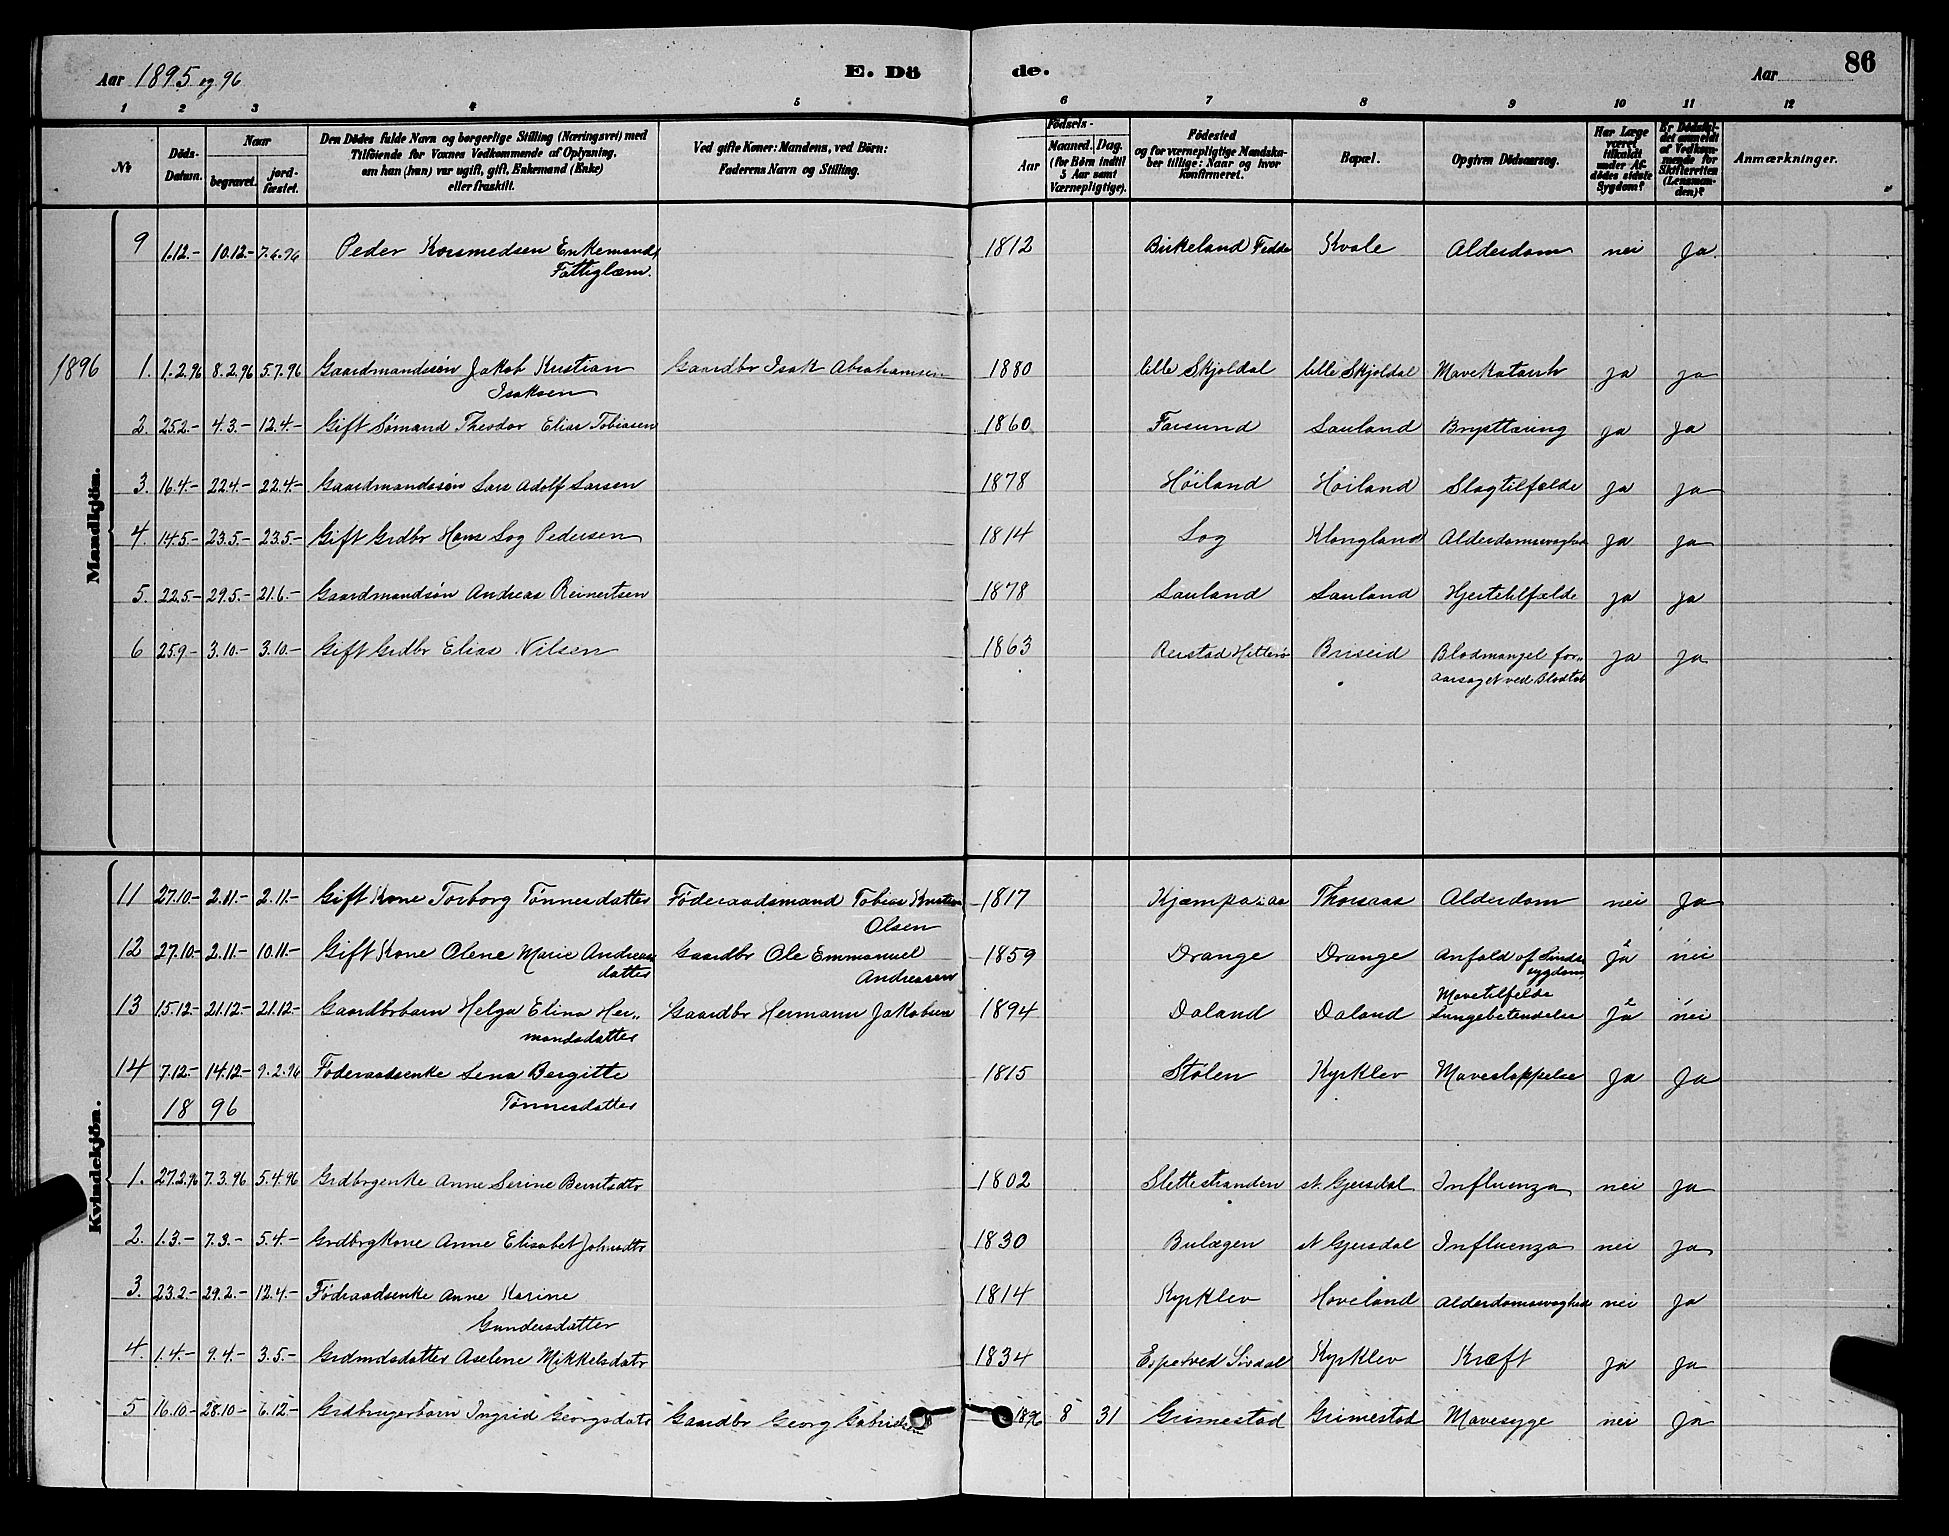 Aar 1895 og 96 E. Dö de. Aar 86
1 2 3 4 5 6 7 8 9 10 11 12
No Döds-Datum. Naar begravet. jord-fæstet. Den Dödes fulde Navn og borgerlige Stilling (Næringsvei) med Tilföiende for Voxnes Vedkommende af Oplysning, om han (hun) var ugift, gift, Enkemand (Enke) eller fraskilt. Ved gifte Koner: Mandens, ved Börn: Faderens Navn og Stilling. Födsels- Aar Maaned. Dag. (for Börn indtil 5 Aar samt Værnepligtige). Födested og for værnepligtige Mandskaber tillige: Naar og hvor konfirmeret. Bopæl. Opgiven Dödsaarsag. Har Læge været tilkaldt under Afdödes sidste Sygdom? Er Dödsfaldet anmeldt af Vedkommende for Skifteretten (Lensmanden)? Anmærkninger.
Mandkjön.
9 1.12.- 10.12- 7.6.96 Peder Kosmedsen Enkemand, 1812 Birkeland Fedde Kvale Alderdom nei Ja
Fattiglem.
1896 1. 1.2.96 8.2.96 5.7.96 Gaardmandssön Jakob Kristian Gaardbr Isak Abrahamsen 1880 lille Skjoldal lille Skjoldal Mavekatarrh ja ja
Isaksen
2. 25.2.- 4.3.- 12.4.- Gift Sömand Theodor Elias Tobiasen 1860 Farsund Sauland Brysttæring ja Ja
3. 16.4.- 22.4.- 22.4.- Gaardmandssön Lars Adolf Larsen 1878 Höiland Höiland Slagtilfælde ja ja
4. 14.5.- 23.5.- 23.5.- Gift Grdbr Hans Log Pedersen 1814 Log Klongland Alderdomssvaghed ja ja
5. 22.5.- 29.5.- 21.6.- Gaardmandsön Andreas Reinertsen 1878 Sauland Sauland Hjertetilfælde ja ja
6 25.9- 3.10.- 3.10.- Gift Grdbr Elias Nilsen 1863 Reistad Hitterö Briseid Blodmangel for-
aarsaget ved Blodtab ja ja
Kvindekjön.
11 27.10.- 2.11.- 2.11.- Gift Kone Torborg Tönnesdatter Föderaadsmand Tobias Kristian 1817 Kjæmpaiaa Thorsaas Alderdom nei Ja
Olsen
12 27.10- 2.11- 10.11.- Gift Kone Olene Marie Andreas Gaardbr Ole Emmanuel 1859 Drange Drange Anfald af Sinds- Ja nei
datter Andreassen sygdom
13 15.12- 21.12.- 21.12- Gaardbrbarn Helga Elina Her- Gaardbr Hermann Jakobsen 1894 Daland Daland Mavetilfælde
Lungebetændelse Ja nei
mandsdatter
14 7.12.- 14.12- 9.2.96 Föderaadsenke Lena Bergitte 1815 Stölen Kyrklev Maveslappelse Ja Ja
18 96 Tönnesdatter
1. 27.2.96 7.3.96 5.4.96 Grdbrgenke Anne Serine Berntsdtr 1802 Slettestranden st. Gjersdal Influenza nei ja
2. 1.3.- 7.3.- 5.4.- GrdbrgKone Anne Elisabet Johnsdtr 1830 Bulægen st Gjersdal Influenza nei ja
3. 23.2.- 29.2.- 12.4.- Födraadsenke Anne Karine 1814 Kyrklev Hoveland Alderdomssvaghed nei Ja
Gundersdatter
4. 1.4.- 9.4.- 3.5.- Grdmdsdatter Aselene Mikkelsdatr 1834 Espetved Sirdal Kyrklev Kræft ja Ja
5 16.10.- 28.10- 6.12- Grdbrugerbarn Ingrid Georgsdatr Gaardbr Georg Gabrielsen 1896 8 31 Grimestad Grimestad Mavesyge nei Ja